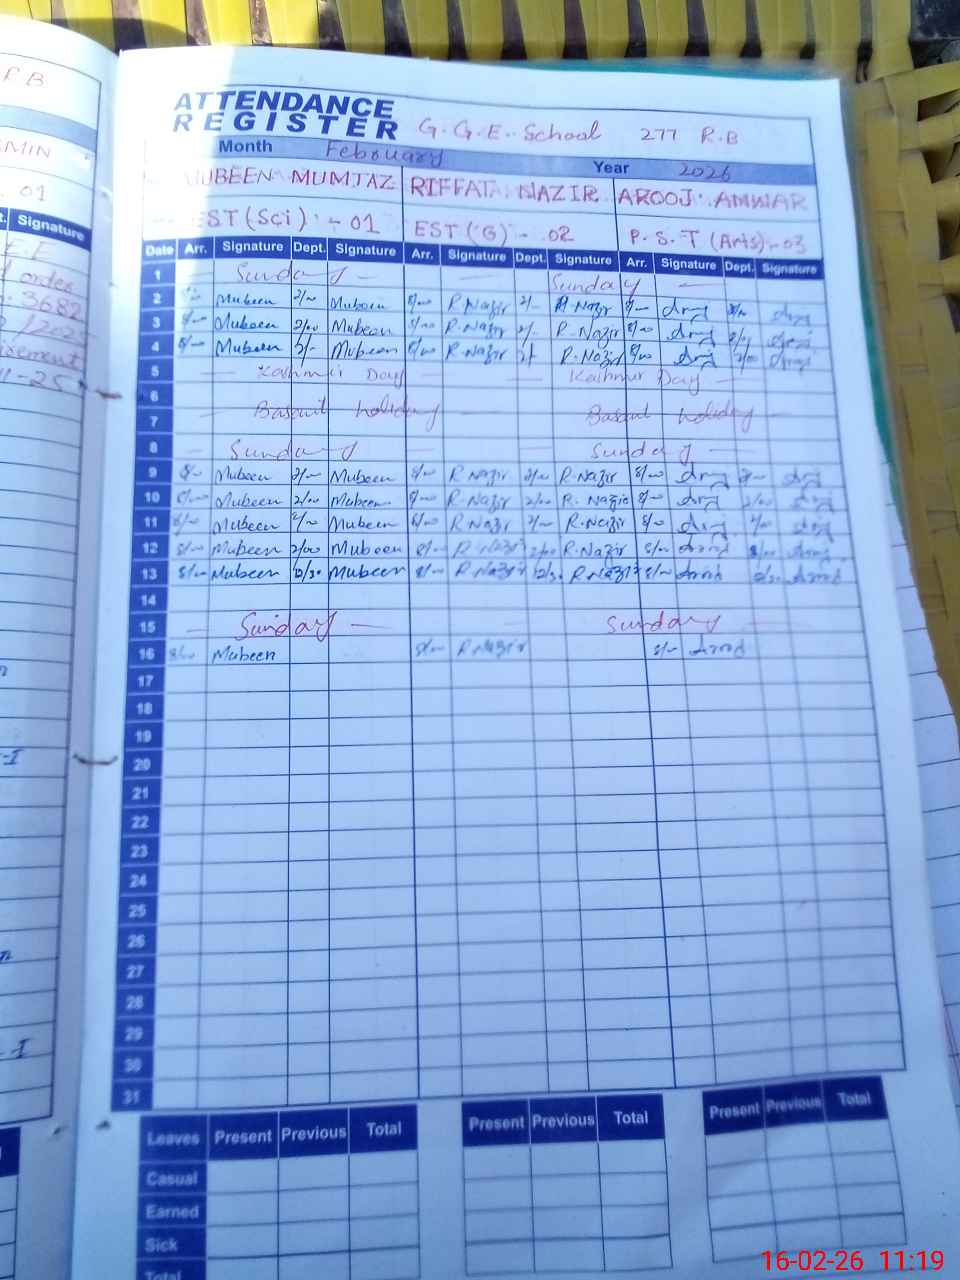 F B
SMIN
. 01
t. Signature
order
. 3682
/202
isement
11-25
ATTENDANCE
REGISTER G.G.E. School 277 R.B
Month February Year 2026
MUBEEN MUMTAZ RIFFAT NAZIR AROOJ ANWAR
EST (Sci) - 01 EST (G) - 02 P.S.T (Arts) - 03
Date Arr. Signature Dept. Signature Arr. Signature Dept. Signature Arr. Signature Dept. Signature
1 — Sunday — — Sunday —
2 Mubeen 2/00 Mubeen 8/00 R.Nazir 2/- R.Nazir 8/-
3 8/00 Mubeen 2/00 Mubeen 8/00 R.Nazir 2/- R.Nazir 8/00
4 8/00 Mubeen 2/- Mubeen 8/00 R.Nazir 2/- R.Nazir 8/00
5 — Kashmir Day — — Kashmir Day —
6
7 — Basant holiday — Basant holiday —
8 — Sunday — Sunday —
9 8/- Mubeen 2/00 Mubeen 8/00 R.Nazir 2/00 R.Nazir 8/00
10 8/00 Mubeen 2/00 Mubeen 8/00 R.Nazir 2/00 R.Nazir 8/00
11 8/00 Mubeen 2/00 Mubeen 8/00 R.Nazir 2/00 R.Nazir 8/00
12 8/00 Mubeen 2/00 Mubeen 8/00 R.Nazir 2/00 R.Nazir 8/00
13 8/00 Mubeen 12/30 Mubeen 8/00 R.Nazir 12/30 R.Nazir 8/00
14
15 — Sunday — Sunday —
16 8/00 Mubeen 8/00 R.Nazir 8/00
17
18
19
20
21
22
23
24
25
26
27
28
29
30
31
Leaves Present Previous Total Present Previous Total Present Previous Total
Casual
Earned
Sick
Total
16-02-26 11:19